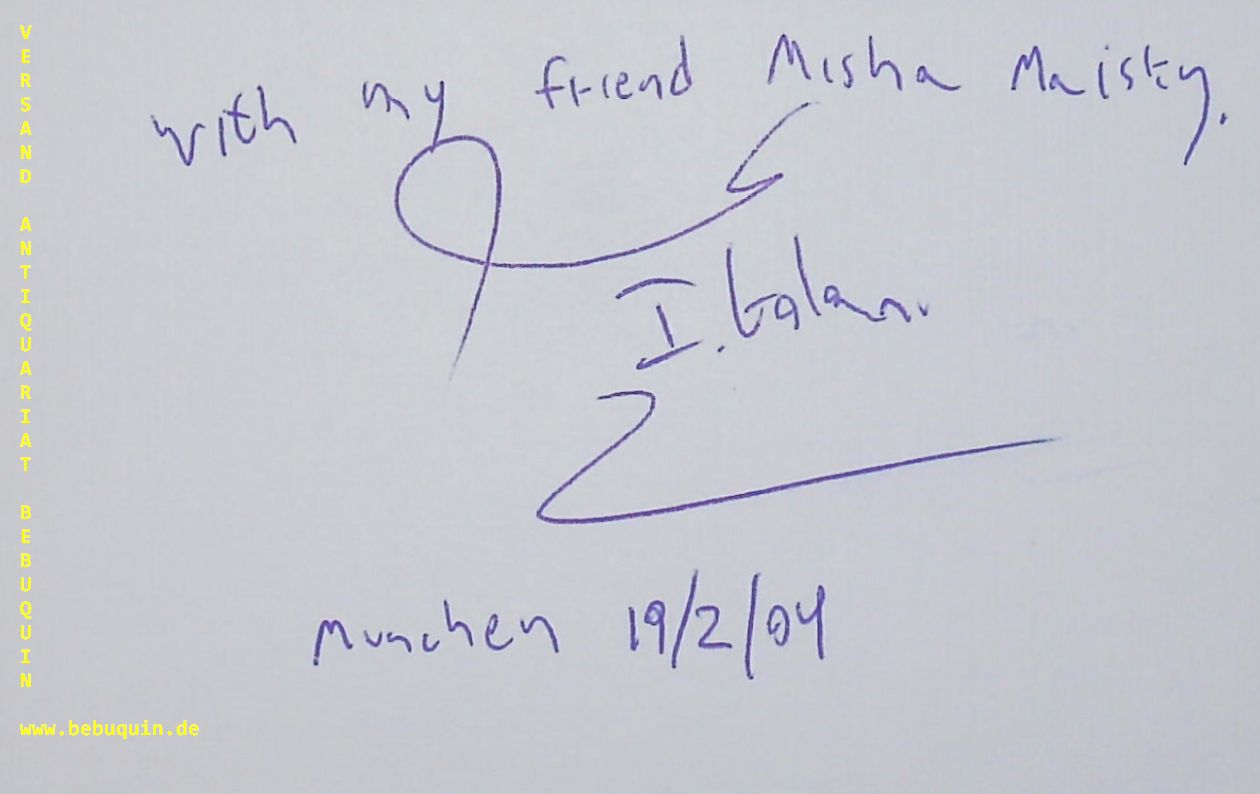 with my friend Misha Maisky.
I. Golan.
Munchen 19/2/04
VERSAND ANTIQUARIAT BEBUQUIN
www.bebuquin.de